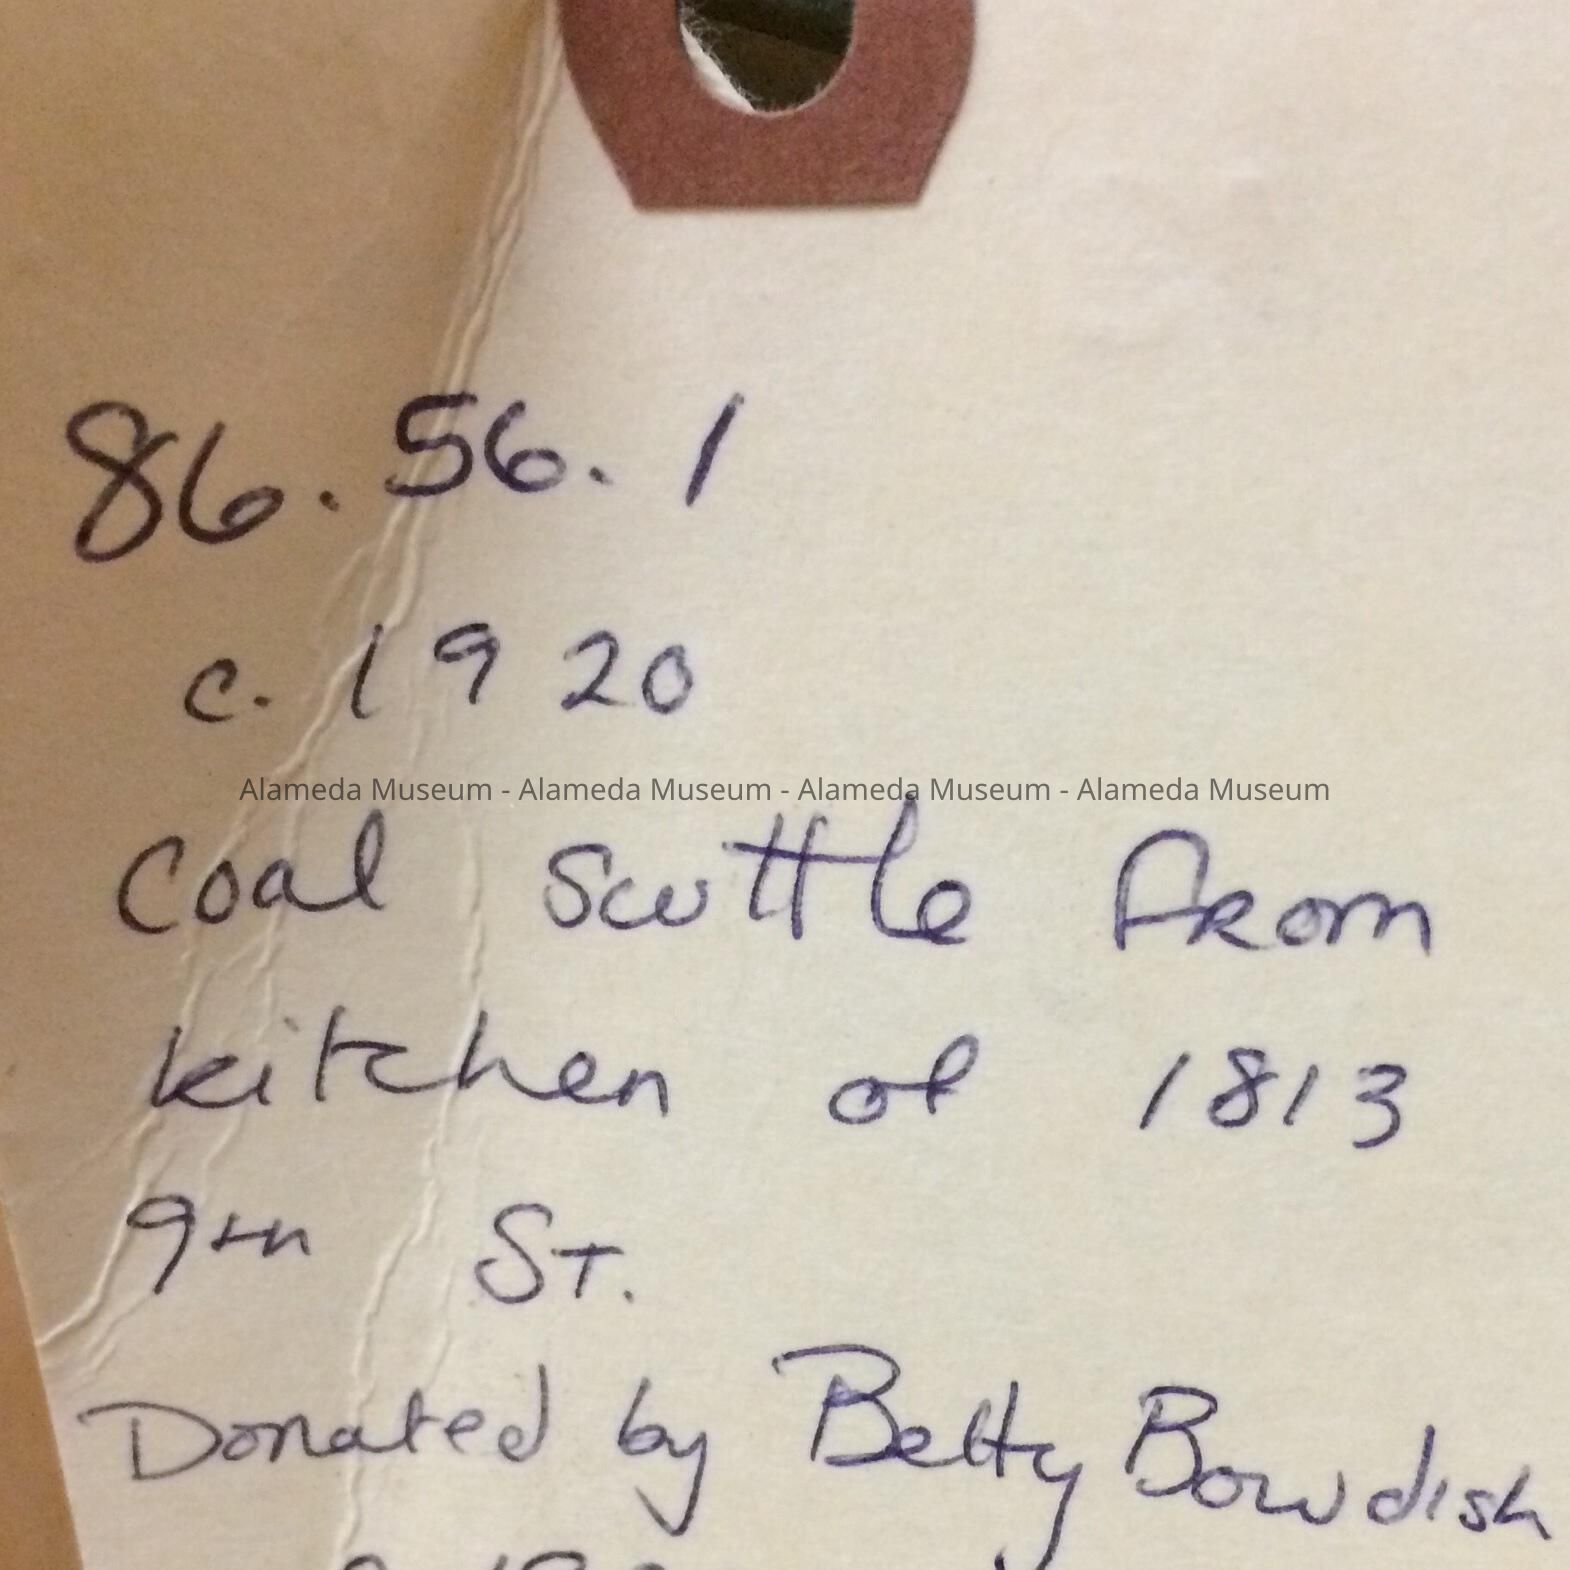 86.56.1
c. 1920
Alameda Museum - Alameda Museum - Alameda Museum - Alameda Museum
Coal Scuttle from
kitchen of 1813
9th St.
Donated by Betty Bowdish